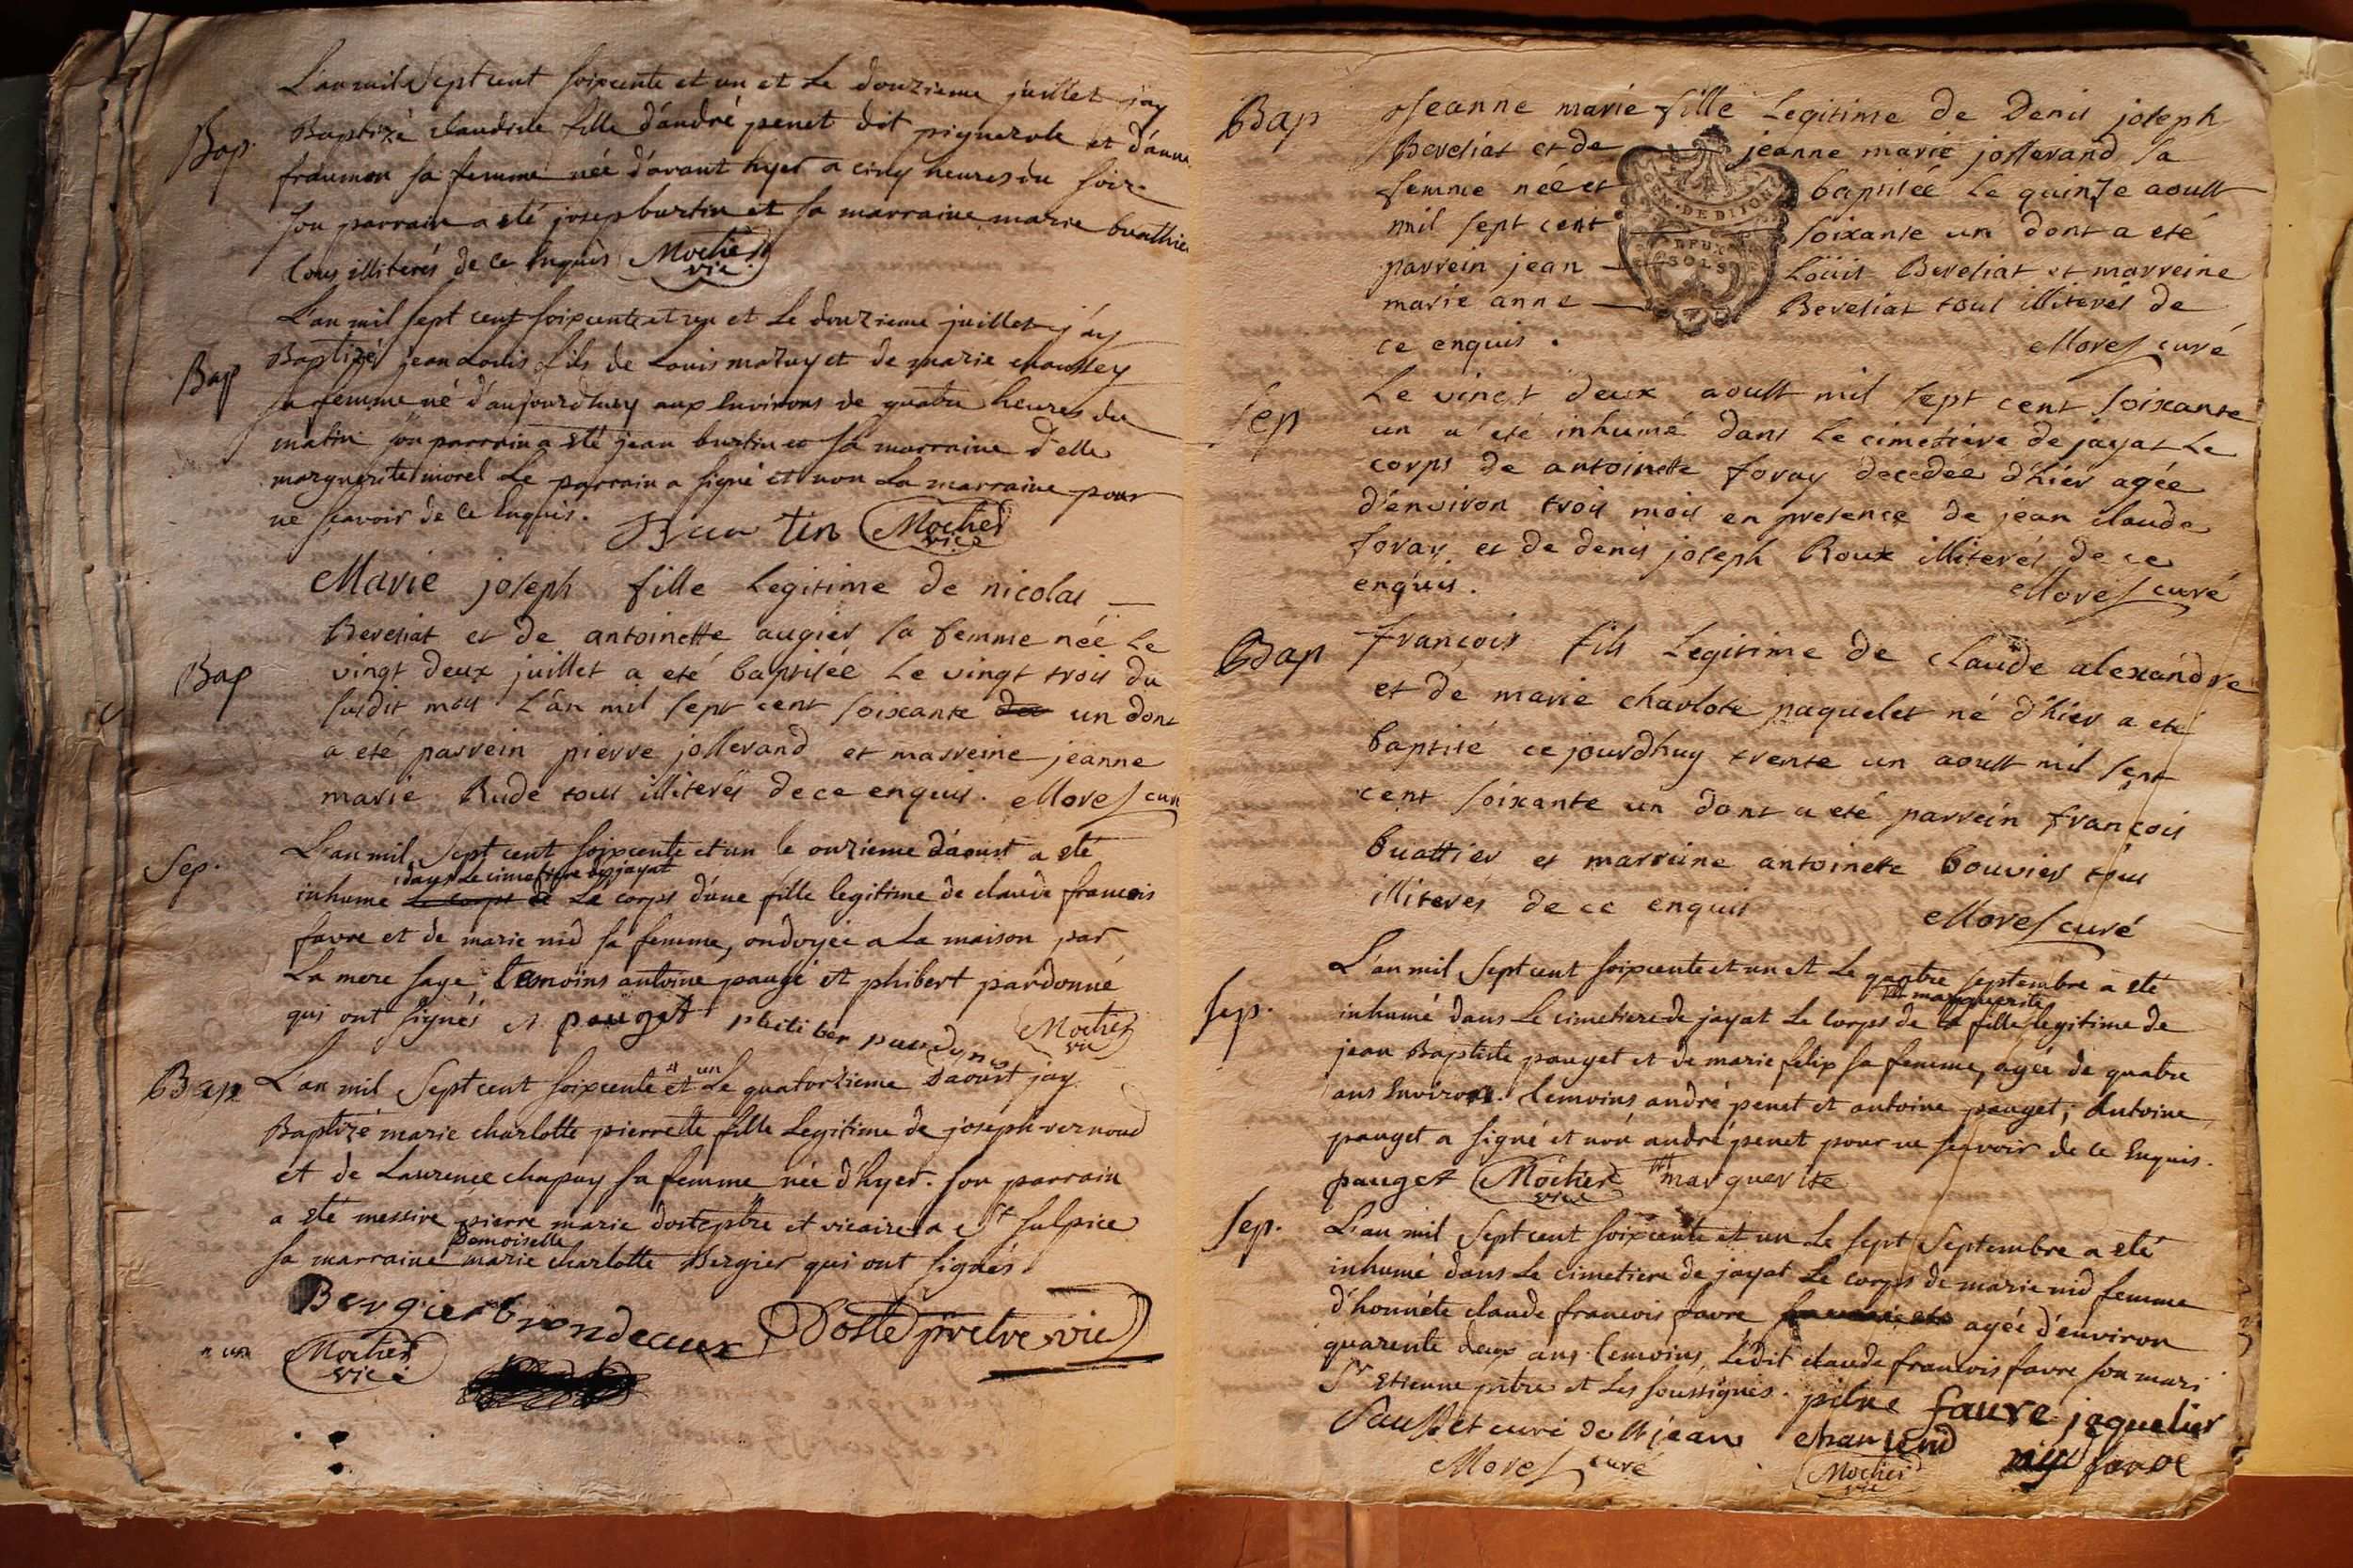 L'an mil Sept cent soixcente et un et Le douzieme juillet jay
Bap.
Baptizé claudine fille d'andré penet dit pignerole et d'anne
fraumon sa femme née d'avant hyer a cinq heures du soir.
son parrain a eté josep burtin et sa marraine marie buathier
tous illiterés de ce Enquis Mochet
vic.
L'an mil sept cent soixcente et un et Le douzieme juillet j'ay
Bap
Baptizé jean Louis fils de Louis matuy et de marie chaussey
sa femme né d'aujourd'huy aux Environs de quatre heures du
matin son parrain a eté jean burtin et sa marraine d'elle
marguerite morel Le parrain a signé et non La marraine pour
ne sçavoir de ce Enquis.
Burtin Mochet
vice
Marie joseph fille Legitime de nicolas
Bereiat et de antoinette augier sa femme née Le
Bap
vingt deux juillet a eté baptisée Le vingt trois du
susdit mois L'an mil sept cent soixante un dont
a eté parrein pierre josserand et marreine jeanne
marie Rude tous illiterés de ce enquis. Morel cur
Sep.
L'an mil Sept cent soixcente et un le onzieme d'aoust a eté
dans Le cimetiere de jayat
inhumé Le corps de Le corps d'une fille legitime de claude francois
favre et de marie nid sa femme, ondoyée a La maison par
La mere sage temoins antoine paugé et phibert pardonné
qui ont signés A pauget philiber pardone Mochet
vic
Bap
L'an mil Sept cent soixcente et un Le quatorzieme d'aoust jay
Baptizé marie charlotte pierrette fille Legitime de joseph vernoud
et de Laurence chapuy sa femme née d'hyer. son parrain
a eté messire pierre marie doste ptre et vicaire a St sulpice
Demoiselle
sa marraine marie charlotte Bergier qui ont signés.
Bergier brondeaux Doste pretre vic
" un Mochet
vice
Bap
Jeanne marie fille Legitime de Denis joseph
Bereiat et de jeanne marie josserand sa
femme née et baptisée Le quinze aoust
mil sept cent soixante un dont a eté
parrein jean Loüis Bereiat et marreine
marie anne Bereiat tous illiterés de
ce enquis.
Morel curé
GEN. DE DIJON
DEUX
SOLS
Sep
Le vingt deux aoust mil sept cent soixante
un a eté inhumé dans Le cimetiere de jayat Le
corps de antoinette foray decedée d'hier agée
d'environ trois mois en presence de jean claude
foray et de denis joseph Roux illiterés de ce
enquis.
Morel curé
Bap
François fils Legitime de claude alexandre
et de marie charlote paquelet né d'hier a eté
baptisé ce jourdhuy trente un aoust mil sept
cent soixante un dont a eté parrein françois
buattier et marreine antoinete bouvier tous
illiterés de ce enquis
Morel curé
Sep.
L'an mil Sept cent soixcente et un et Le quatre septembre a eté
marguerite
inhumé dans Le cimetiere de jayat Le corps de la fille legitime de
jean Baptiste pauget et de marie felix sa femme, agée de quatre
ans Environ. temoins andré penet et antoine pauget; Antoine
pauget a signé et non andré penet pour ne sçavoir de ce Enquis.
pauget Mochet marguerite
vice
Sep.
L'an mil Sept cent soixcente et un Le sept Septembre a eté
inhumé dans Le cimetiere de jayat Le corps de marie nid femme
d'honnéte claude francois favre agée d'environ
quarente deux ans. temoins Ledit claude francois favre son mari
Sr Etienne pitre et Les soussignés. pitre favre jaquelier
curé de St jean
Morel curé
Mochet
vic
favre